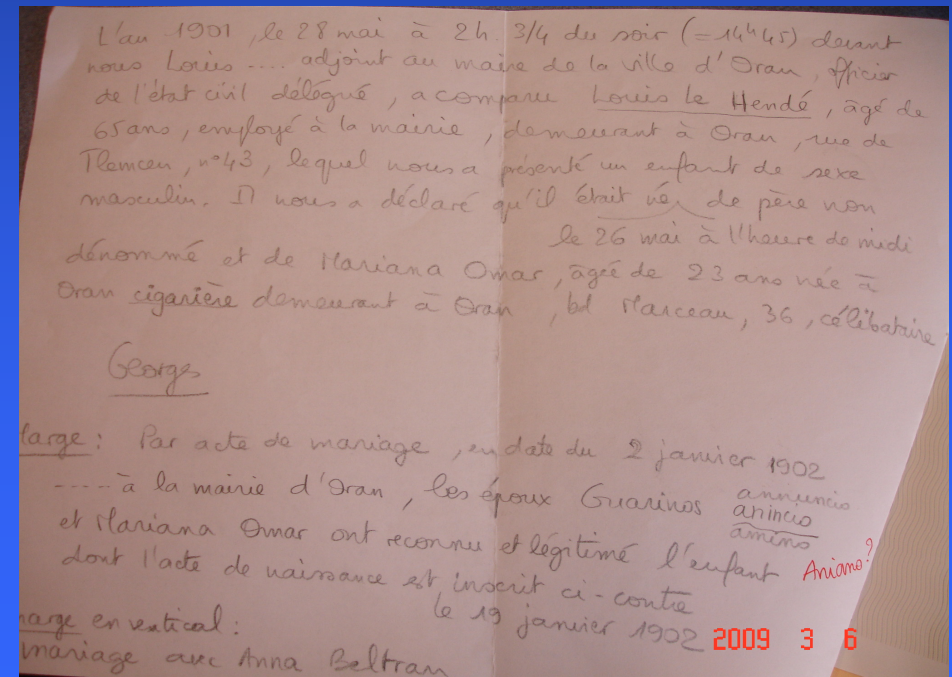 L'an 1901, le 28 mai à 2h. 3/4 du soir (=14h45) devant
nous Louis .... adjoint au maire de la ville d'Oran, officier
de l'état civil délégué, a comparu Louis le Hendé, âgé de
65 ans, employé à la mairie, demeurant à Oran, rue de
Tlemcen, n°43, lequel nous a présenté un enfant de sexe
masculin. Il nous a déclaré qu'il était né de père non
le 26 mai à l'heure de midi
dénommé et de Mariana Omar, âgée de 23 ans née à
Oran cigarière demeurant à Oran, bd Marceau, 36, célibataire
Georges
large : Par acte de mariage, en date du 2 janvier 1902
..... à la mairie d'Oran, les époux Guarinos annuncio
anincio
amino
et Mariana Omar ont reconnu et légitimé l'enfant Aniano?
dont l'acte de naissance est inscrit ci-contre
le 19 janvier 1902
marge en vertical :
mariage avec Anna Beltran
2009 3 6